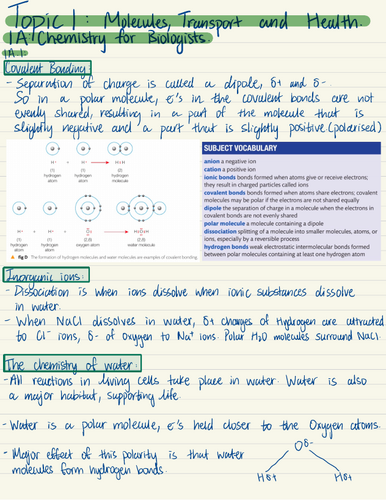 Topic 1: Molecules, Transport and Health.
1A Chemistry for Biologists.
1A.1:
Covalent Bonding
- Separation of charge is called a dipole, δ+ and δ-.
So in a polar molecule, e⁻'s in the covalent bonds are not
evenly shared, resulting in a part of the molecule that is
slightly negative and a part that is slightly positive (polarised)
H· + H· → H:H
(1) (1) (2)
hydrogen atom hydrogen atom hydrogen molecule
(1) (1) (2,6) (2,8)
hydrogen atom hydrogen atom oxygen atom water molecule
fig B The formation of hydrogen molecules and water molecules are examples of covalent bonding.
SUBJECT VOCABULARY
anion a negative ion
cation a positive ion
ionic bonds bonds formed when atoms give or receive electrons;
they result in charged particles called ions
covalent bonds bonds formed when atoms share electrons; covalent
molecules may be polar if the electrons are not shared equally
dipole the separation of charge in a molecule when the electrons in
covalent bonds are not evenly shared
polar molecule a molecule containing a dipole
dissociation splitting of a molecule into smaller molecules, atoms, or
ions, especially by a reversible process
hydrogen bonds weak electrostatic intermolecular bonds formed
between polar molecules containing at least one hydrogen atom
Inorganic ions:
- Dissociation is when ions dissolve when ionic substances dissolve
in water.
- When NaCl dissolves in water, δ+ charges of Hydrogen are attracted
to Cl⁻ ions, δ- of oxygen to Na⁺ ions. Polar H₂O molecules surround NaCl.
The chemistry of water:
- All reactions in living cells take place in water. Water is also
a major habitat, supporting life.
- Water is a polar molecule, e⁻'s held closer to the Oxygen atoms.
- Major effect of this polarity is that water
molecules form hydrogen bonds.
Oδ-
Hδ+ Hδ+